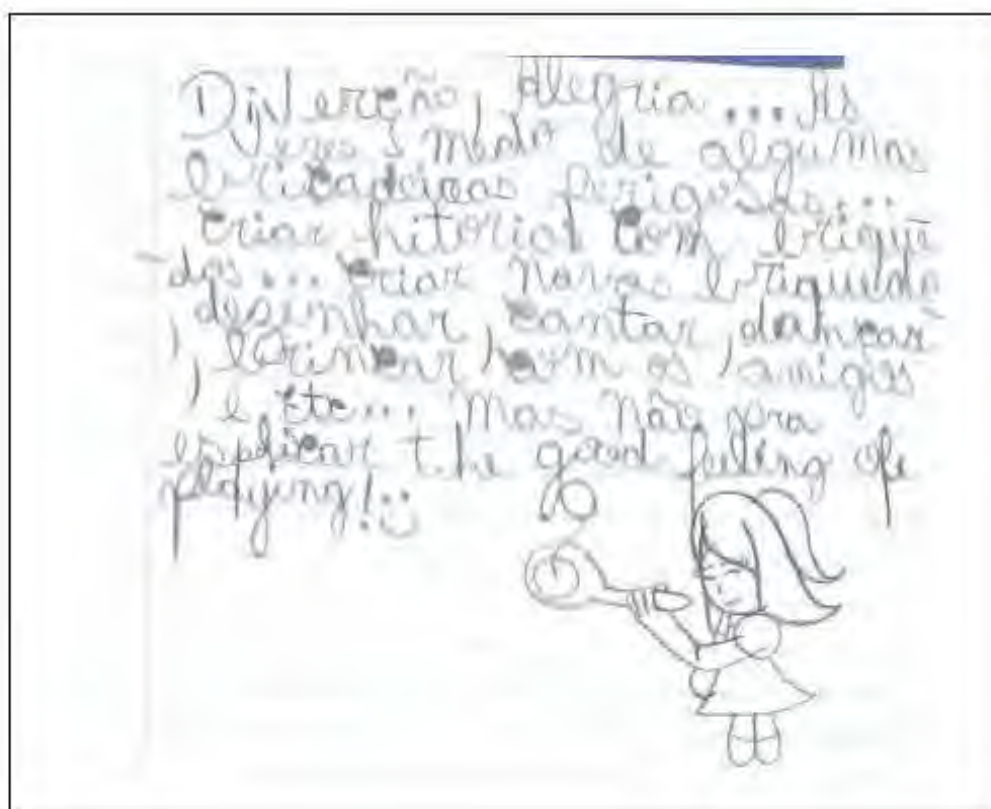 Diverção, Alegria... As
vezes medo de algumas
bricadeiras perigosas...
criar hitorias com brique
-dos... criar novas briquedo
desenhar, cantar, dançar
, brincar, com os amigos
, e etc... Mas não pra
explicar the good feeling of
playing! :)